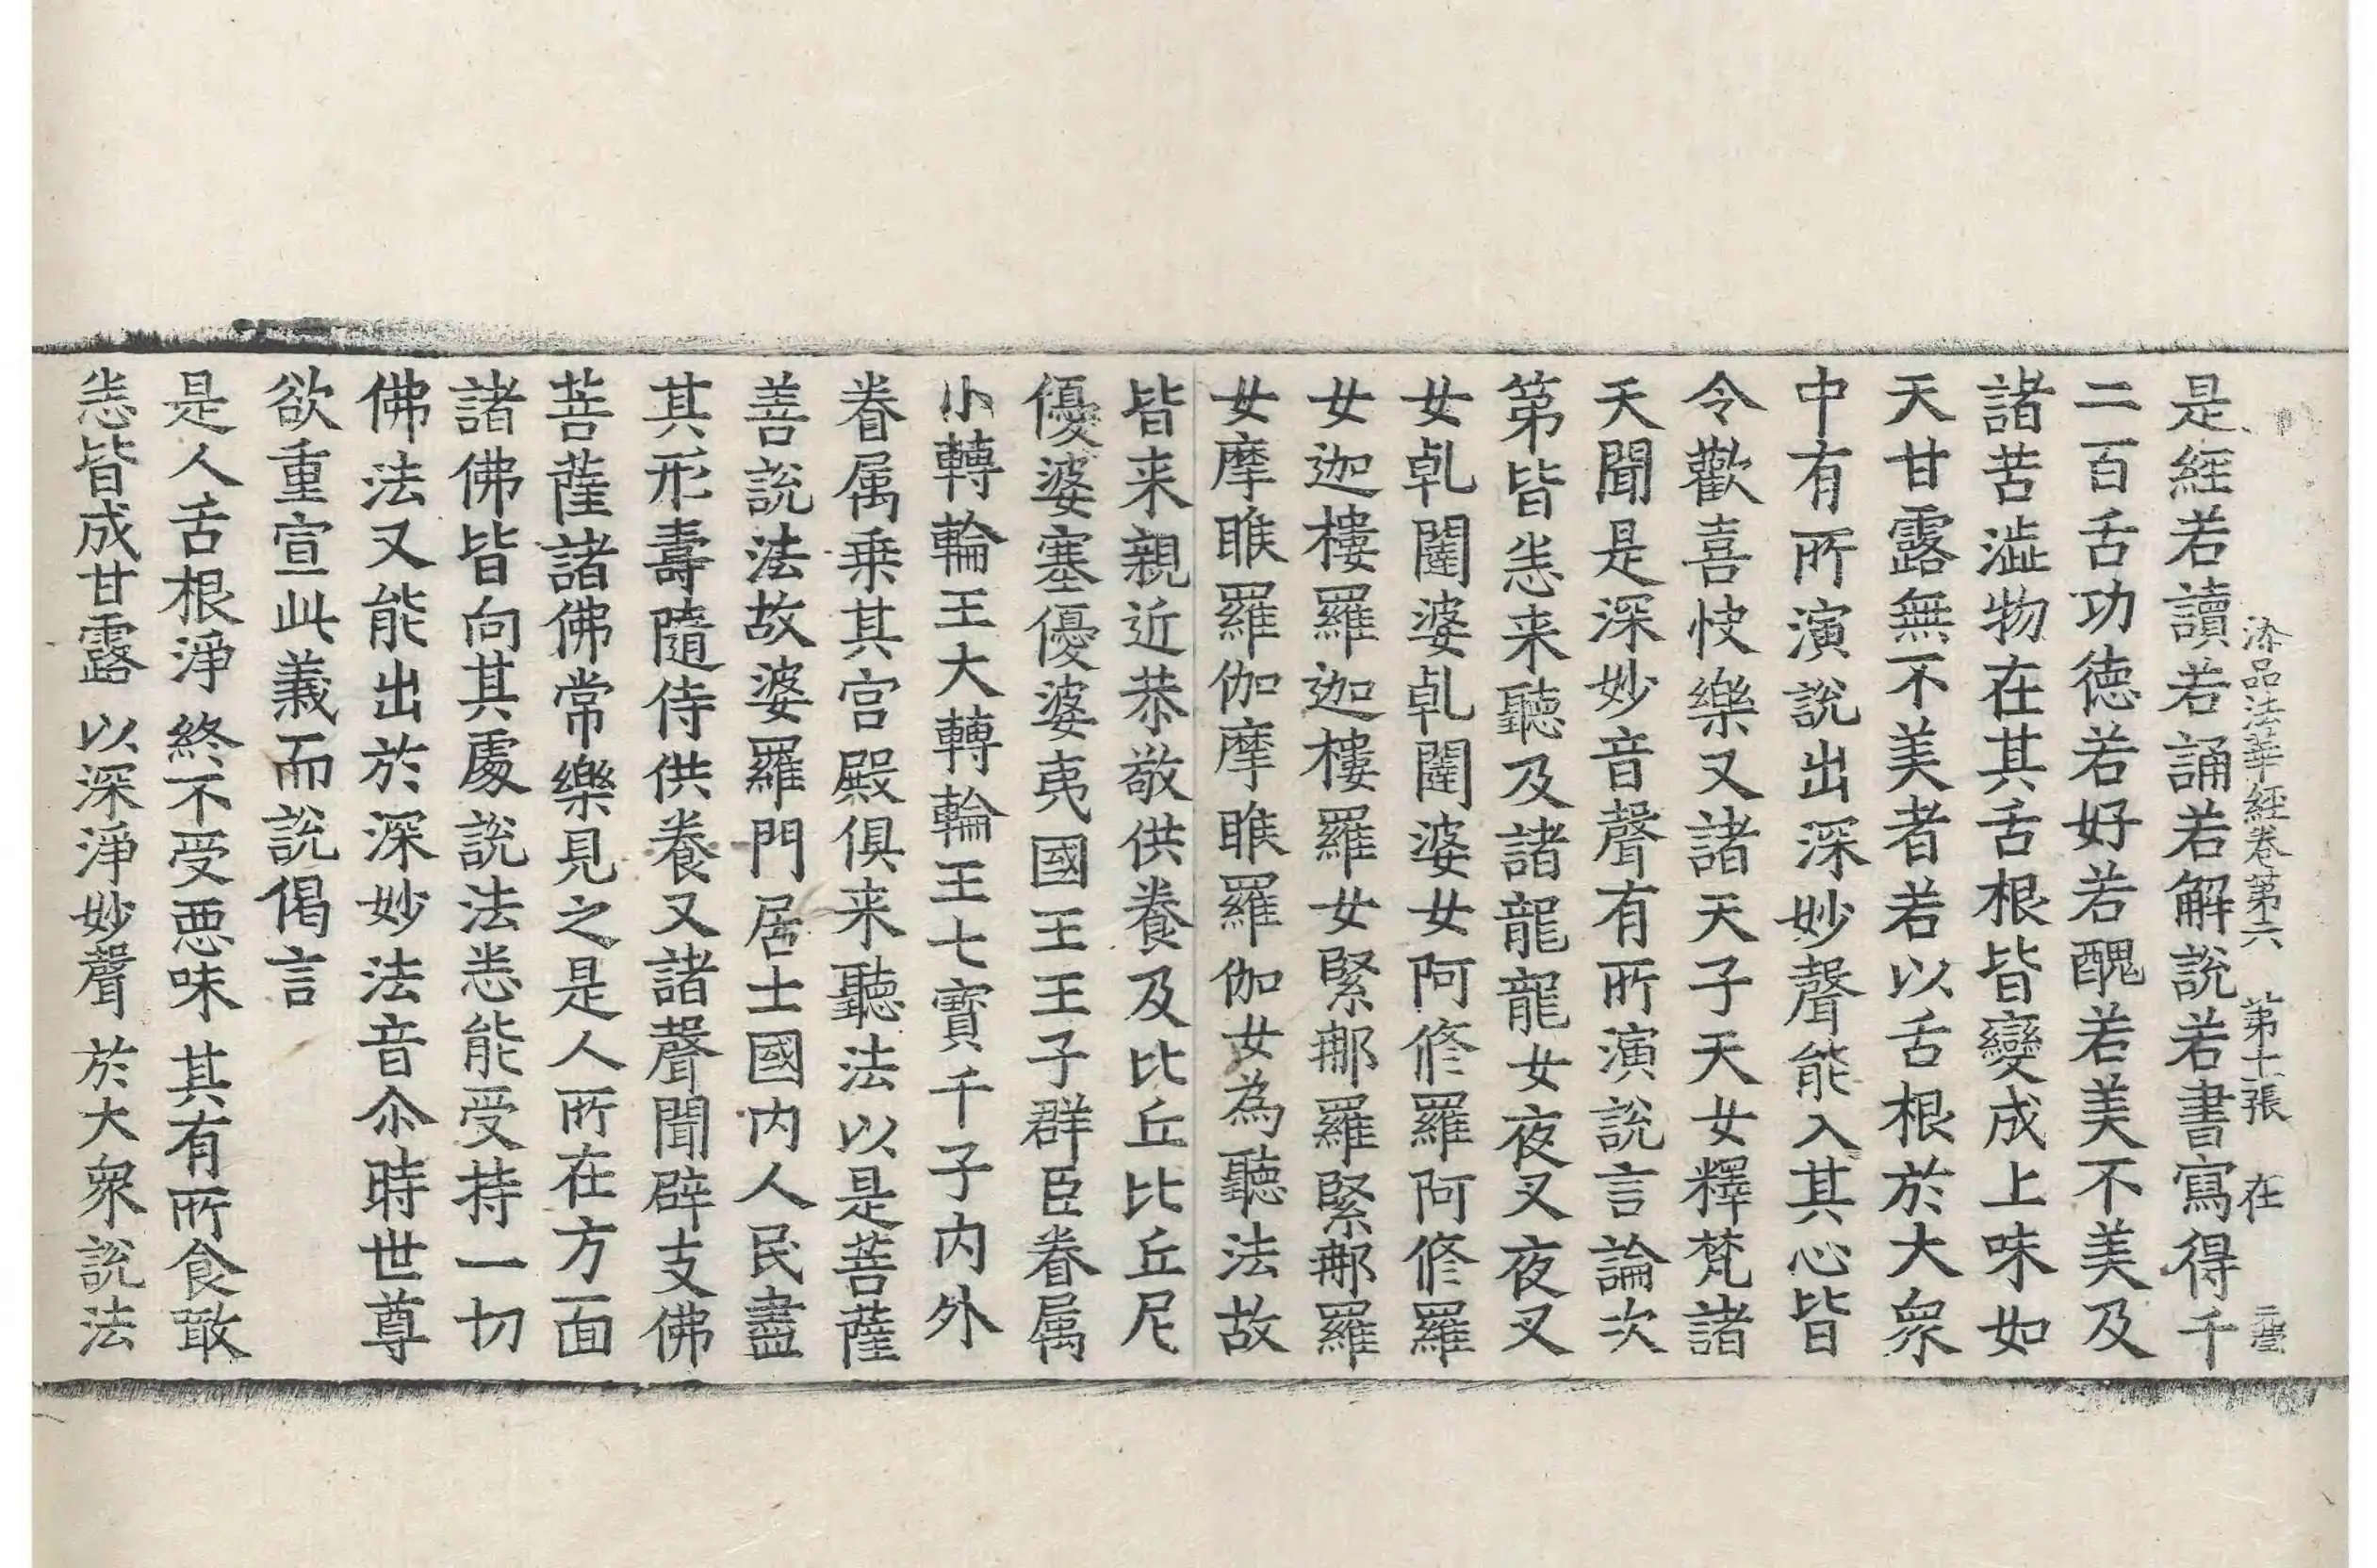 添品法華經卷第六　第十二張　在
是經若讀若誦若解說若書寫得千
二百舌功德若好若醜若美不美及
諸苦澁物在其舌根皆變成上味如
天甘露無不美者若以舌根於大衆
中有所演說出深妙聲能入其心皆
令歡喜快樂又諸天子天女釋梵諸
天聞是深妙音聲有所演說言論次
第皆悉来聽及諸龍龍女夜叉夜叉
女乹闥婆乹闥婆女阿修羅阿修羅
女迦樓羅迦樓羅女緊那羅緊那羅
女摩睺羅伽摩睺羅伽女為聽法故
皆来親近恭敬供養及比丘比丘尼
優婆塞優婆夷國王王子群臣眷属
小轉輪王大轉輪王七寳千子内外
眷属乗其宫殿俱来聽法以是菩薩
善說法故婆羅門居士國内人民盡
其形壽隨侍供養又諸聲聞辟支佛
菩薩諸佛常樂見之是人所在方面
諸佛皆向其處說法悉能受持一切
佛法又能出於深妙法音尒時世尊
欲重宣此義而說偈言
是人舌根淨　終不受惡味　其有所食噉
悉皆成甘露　以深淨妙聲　於大衆說法